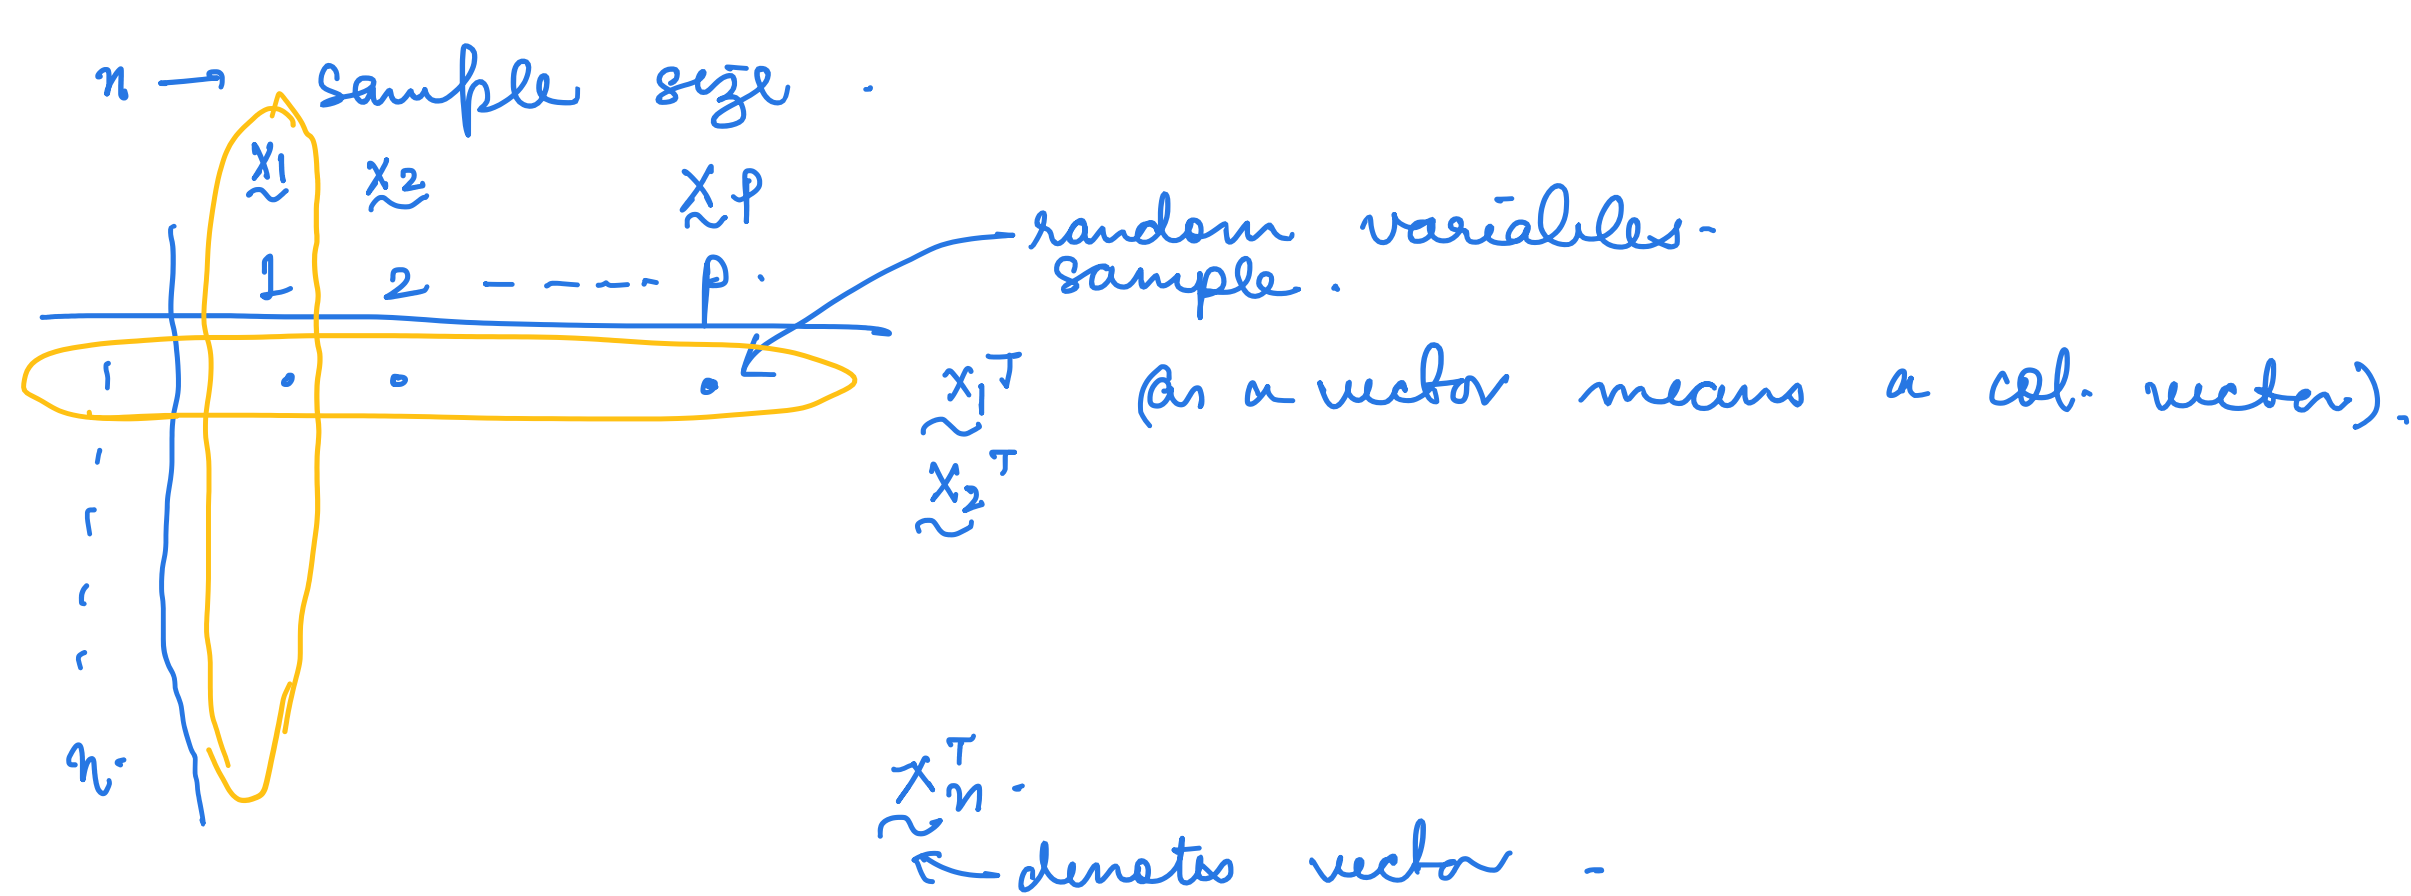 n → sample size .
X1 X2 Xp
1 2 ----- p .
random variables
sample .
1 • • •
X1ᵀ (as a vector means a col. vector).
X2ᵀ
n.
Xnᵀ .
← denotes vector .